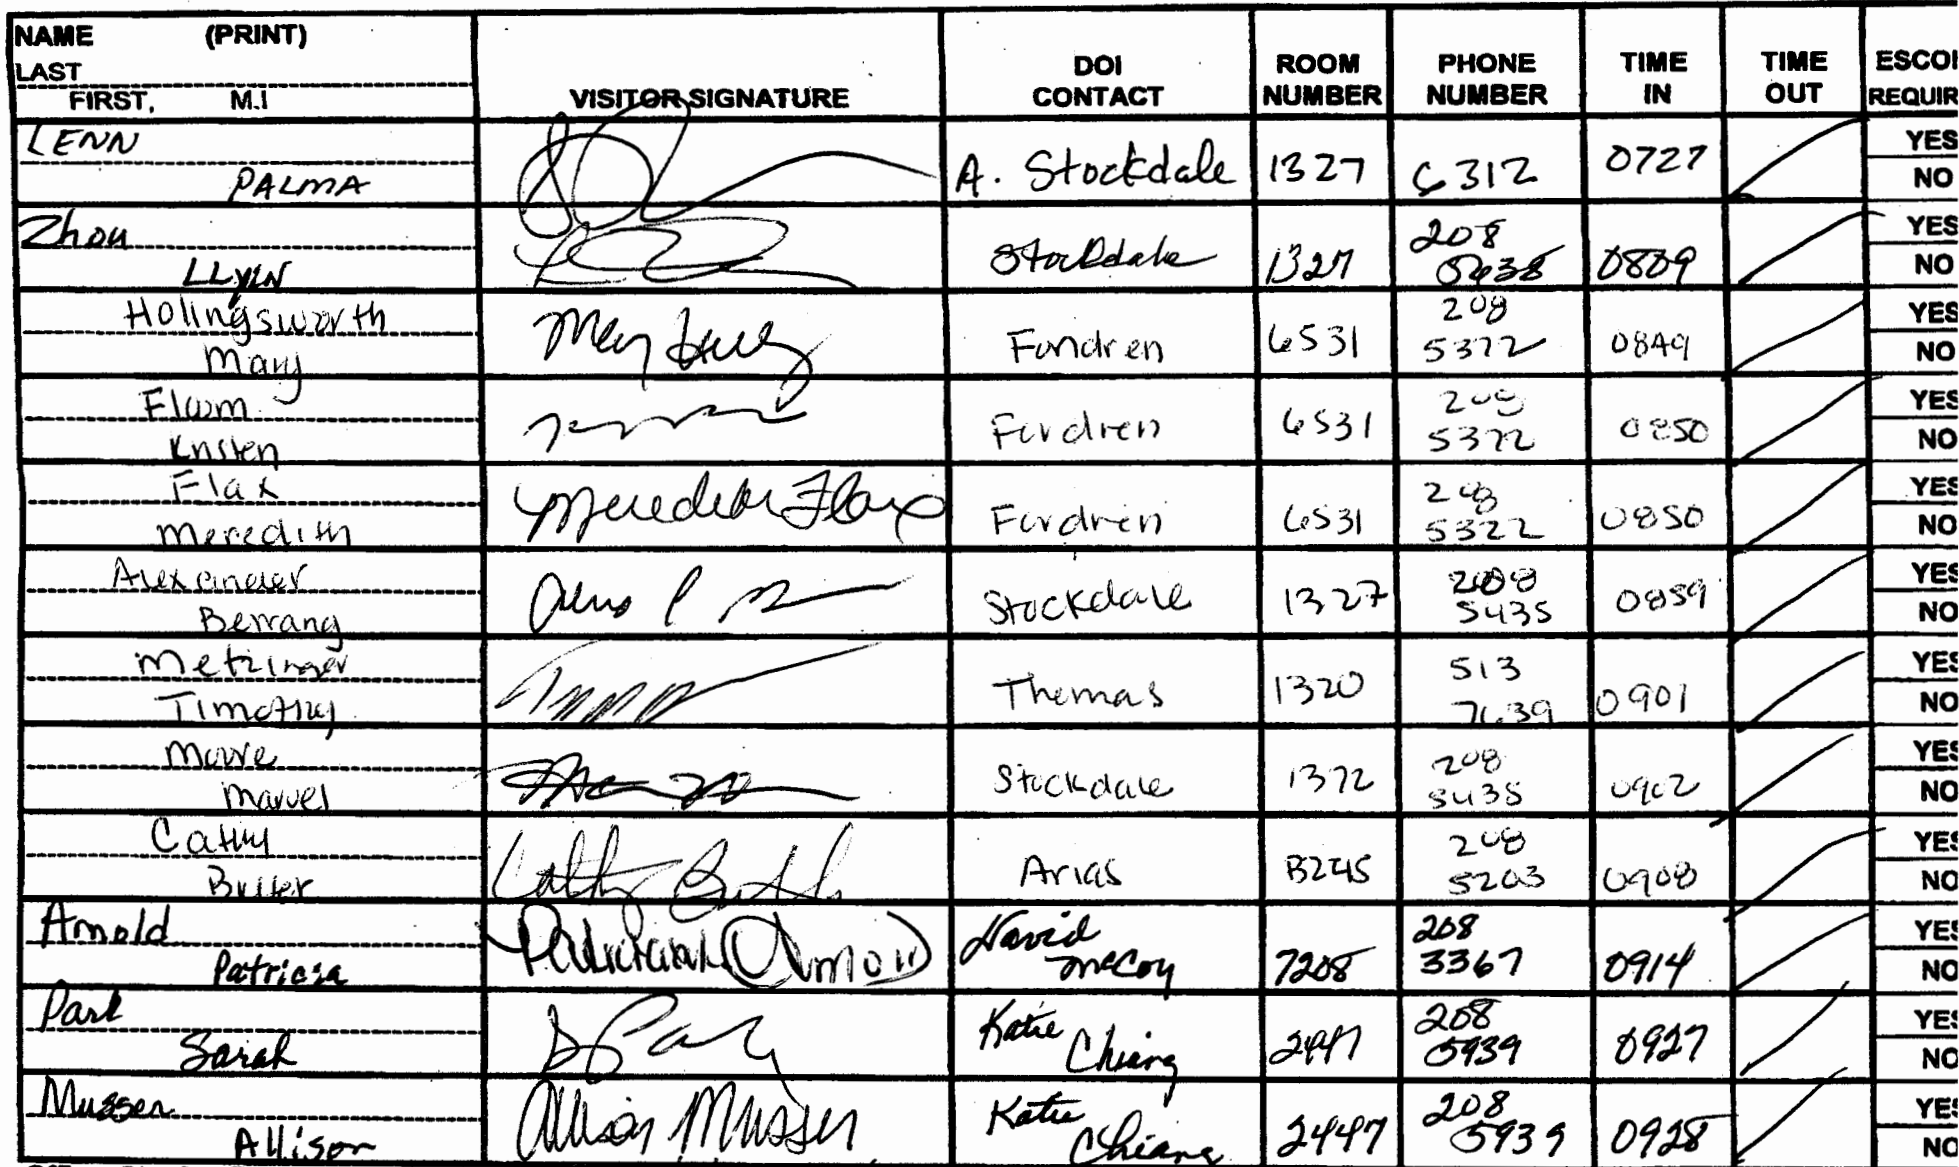 NAME (PRINT)
LAST
FIRST, M.I
VISITOR SIGNATURE
DOI CONTACT
ROOM NUMBER
PHONE NUMBER
TIME IN
TIME OUT
ESCOR
REQUIR
LENN
PALMA
A. Stockdale 1327 6312 0727 YES NO
Zhou
LLyIN
Stockdale 1327 208 0809 YES NO
Holingsworth
Mary
Fondren 6531 208 5322 0849 YES NO
Flom
Kristen
Fondren 6531 208 5322 0850 YES NO
Flax
Meredith
Meredith Flax
Fondren 6531 208 5322 0850 YES NO
Alexander
Berrang
Stockdale 1327 208 5435 0859 YES NO
Metzinger
Timothy
Thomas 1320 513 7639 0901 YES NO
Moore
Marvel
Stockdale 1372 208 5435 0902 YES NO
Cathy
Butler
Cathy Butler
Arias B245 208 5203 0908 YES NO
Arnold
Patricia
Patricia Arnold
David McCoy 7208 208 3367 0914 YES NO
Park
Sarah
S Park
Katie Chiang 2447 208 5939 0927 YES NO
Musser
Allison
Allison Musser
Katie Chiang 2447 208 5939 0928 YES NO